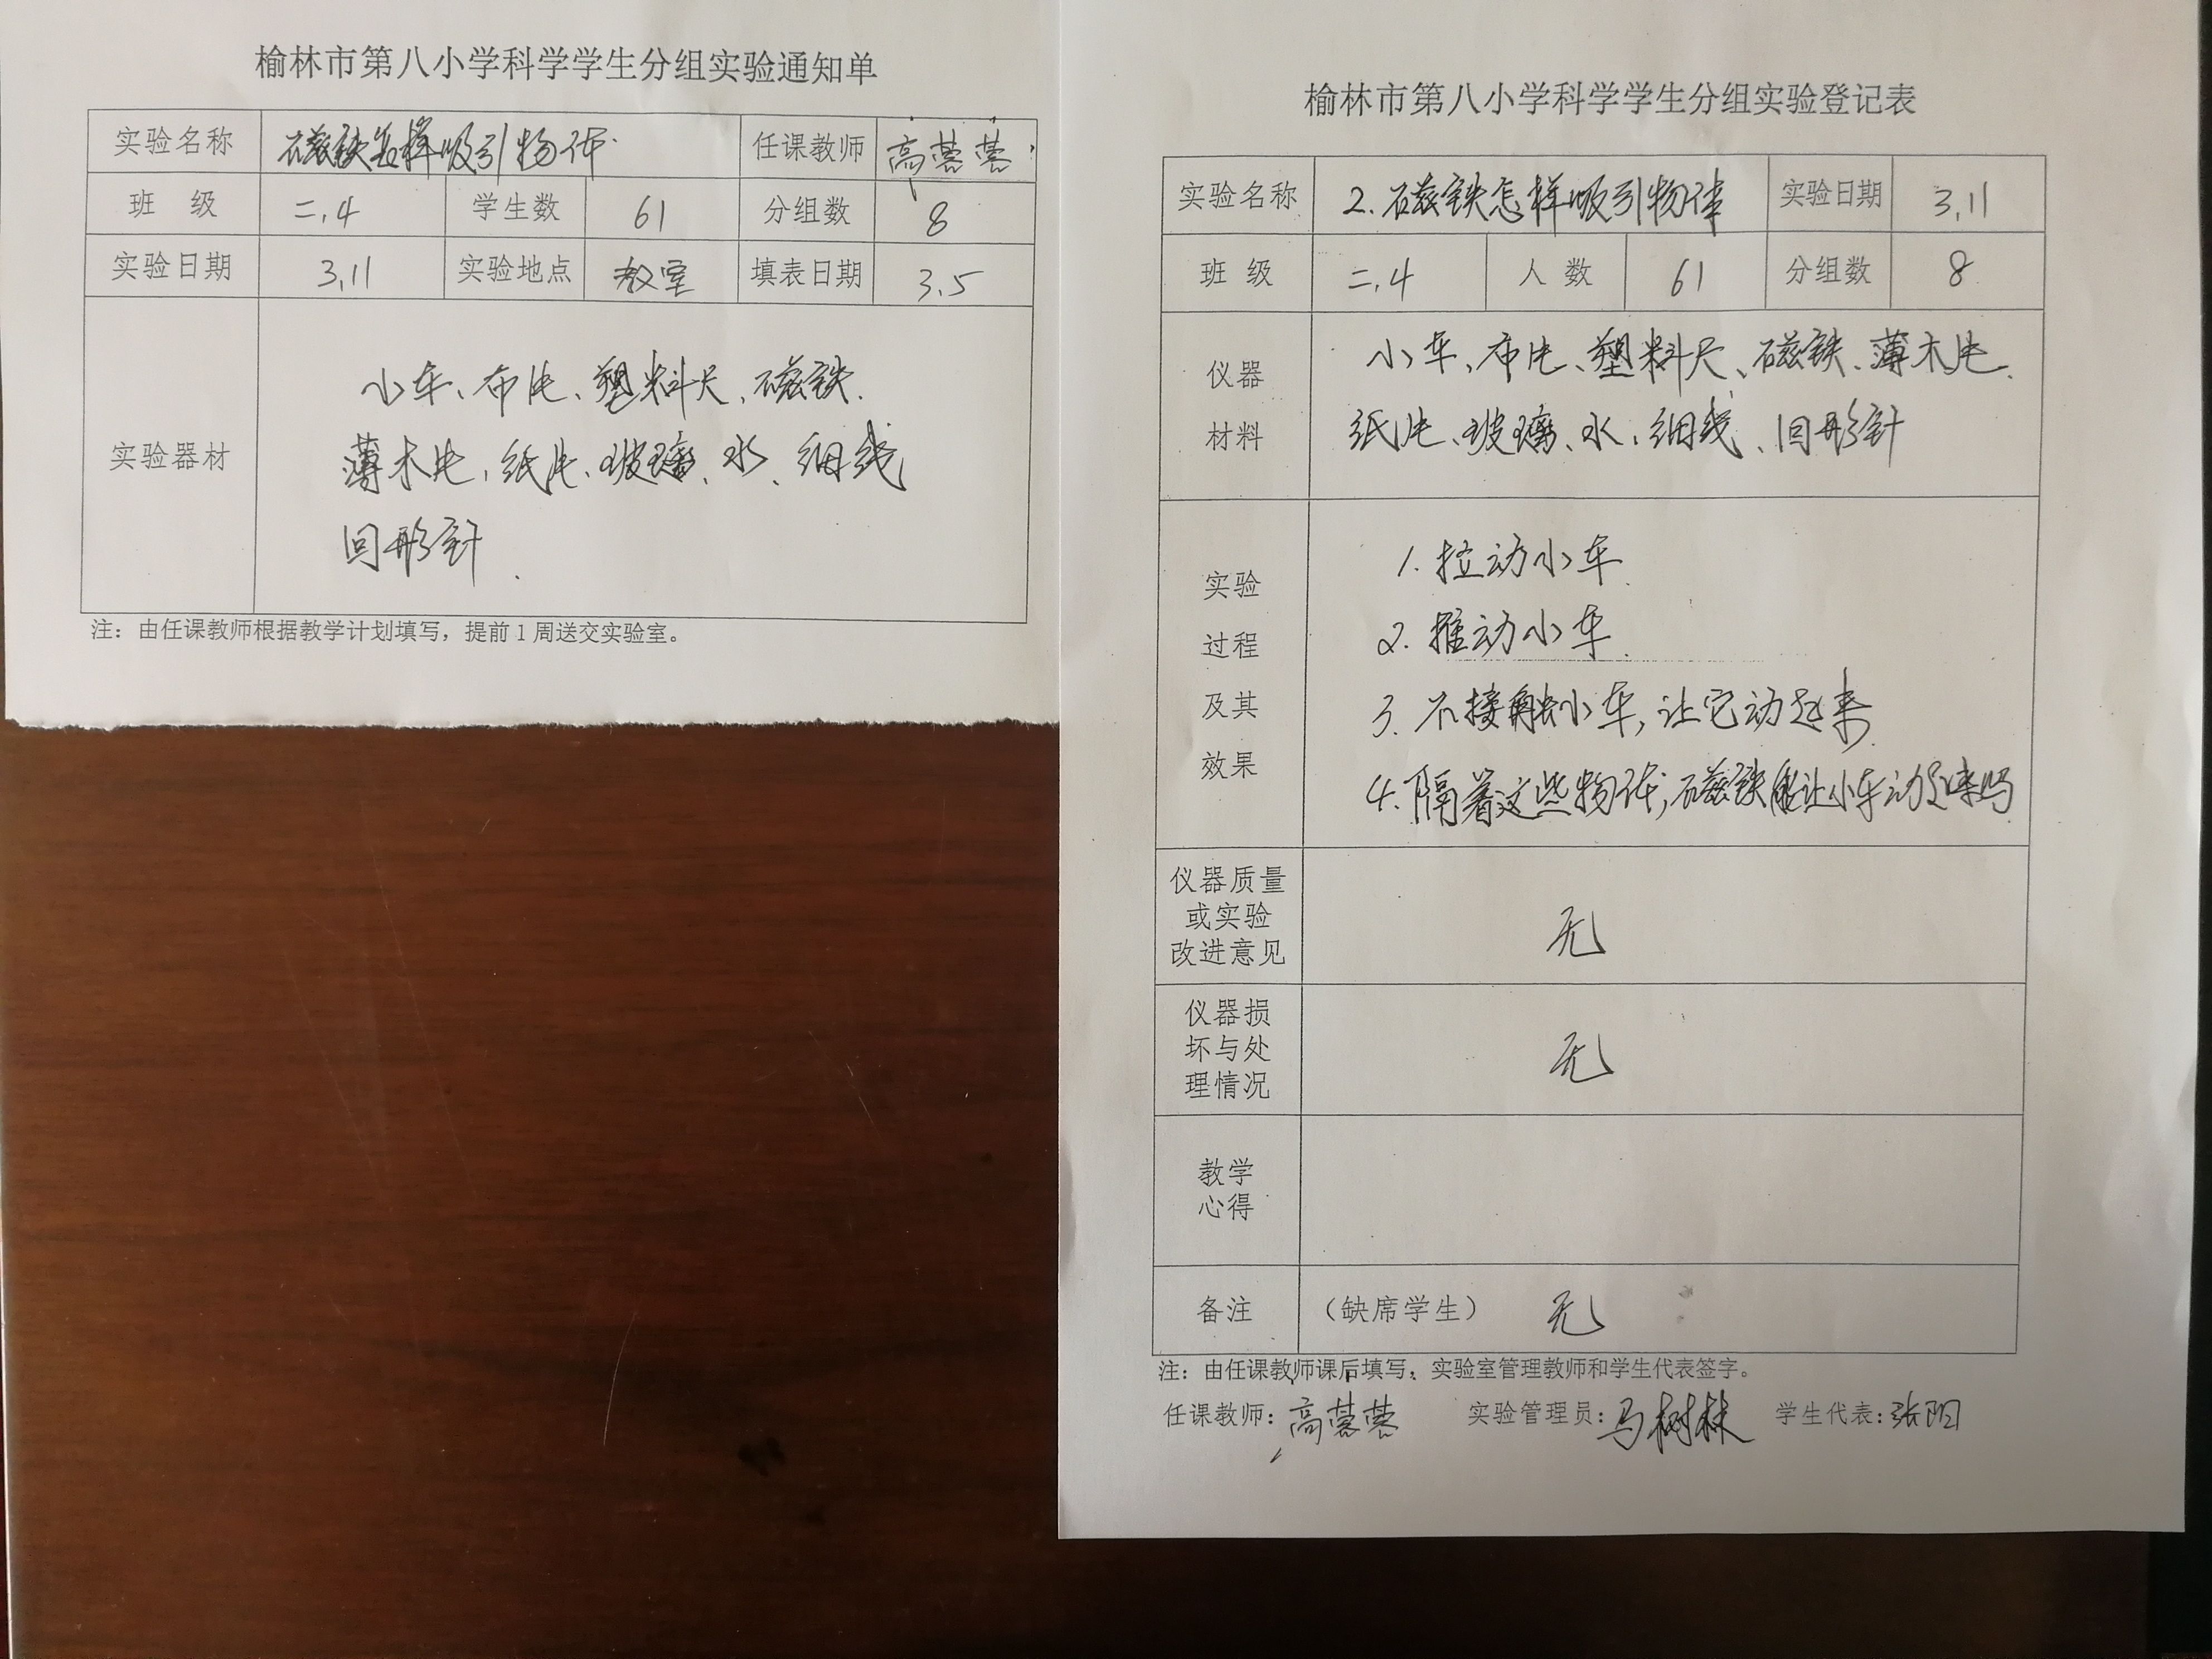 榆林市第八小学科学学生分组实验通知单
实验名称 磁铁怎样吸引物体 任课教师 高蓉蓉
班 级 二.4 学生数 61 分组数 8
实验日期 3.11 实验地点 教室 填表日期 3.5
实验器材
小车、布片、塑料尺、磁铁、
薄木片、纸片、玻璃、水、细线
回形针.
注：由任课教师根据教学计划填写，提前1周送交实验室。
榆林市第八小学科学学生分组实验登记表
实验名称 2.磁铁怎样吸引物体 实验日期 3.11
班 级 二.4 人 数 61 分组数 8
仪器
材料
小车、布片、塑料尺、磁铁、薄木片、
纸片、玻璃、水、细线、回形针
实验
过程
及其
效果
1.拉动小车
2.推动小车.
3.不接触小车,让它动起来
4.隔着这些物体,磁铁能让小车动起来吗
仪器质量
或实验
改进意见
无
仪器损
坏与处
理情况
无
教学
心得
备注 （缺席学生） 无
注：由任课教师课后填写，实验室管理教师和学生代表签字。
任课教师：高蓉蓉 实验管理员：马树林 学生代表：张阳